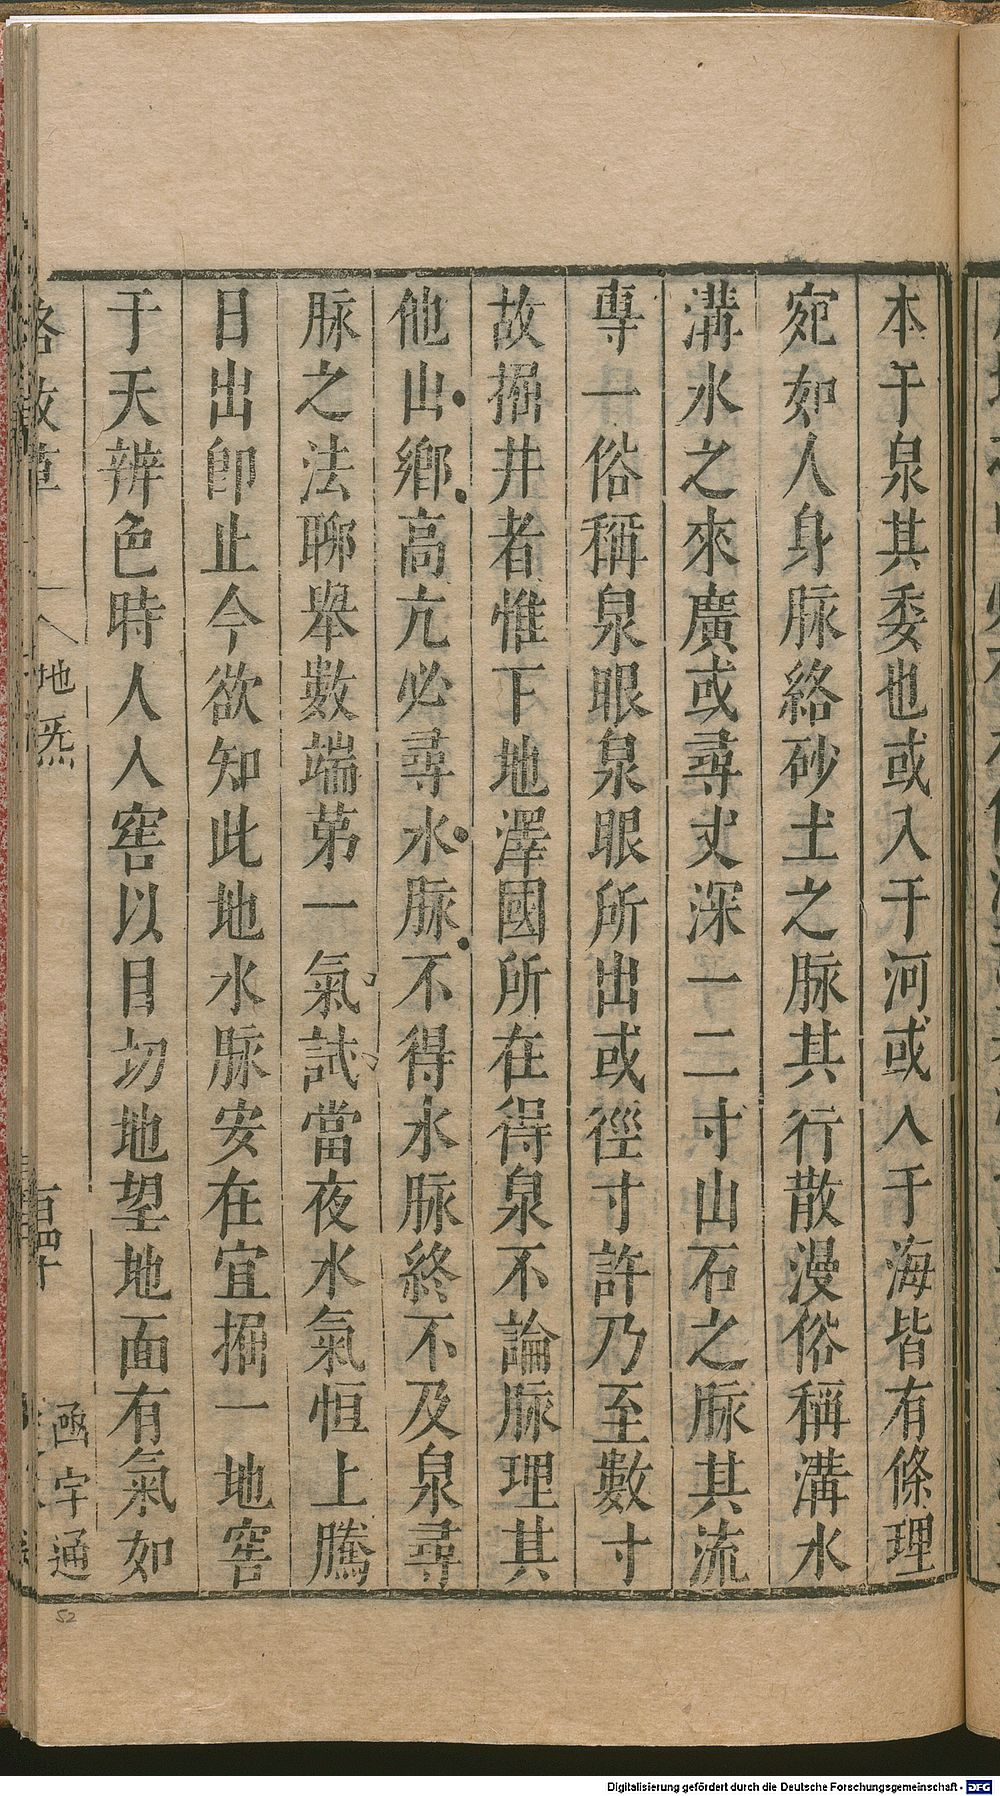 本于泉其委也或入于河或入于海皆有條理
宛如人身脉絡砂土之脉其行散漫俗稱溝水
溝水之來廣或尋丈深一二寸山石之脉其流
專一俗稱泉眼泉眼所出或徑寸許乃至數寸
故掘井者惟下地澤國所在得泉不論脉理其
他山鄉高亢必尋水脉不得水脉終不及泉尋
脉之法聊舉數端第一氣試當夜水氣恒上騰
日出卽止今欲知此地水脉安在宜掘一地窖
于天辨色時人入窖以目切地望地面有氣如
格致草
地
函宇通
52
Digitalisierung gefördert durch die Deutsche Forschungsgemeinschaft - DFG